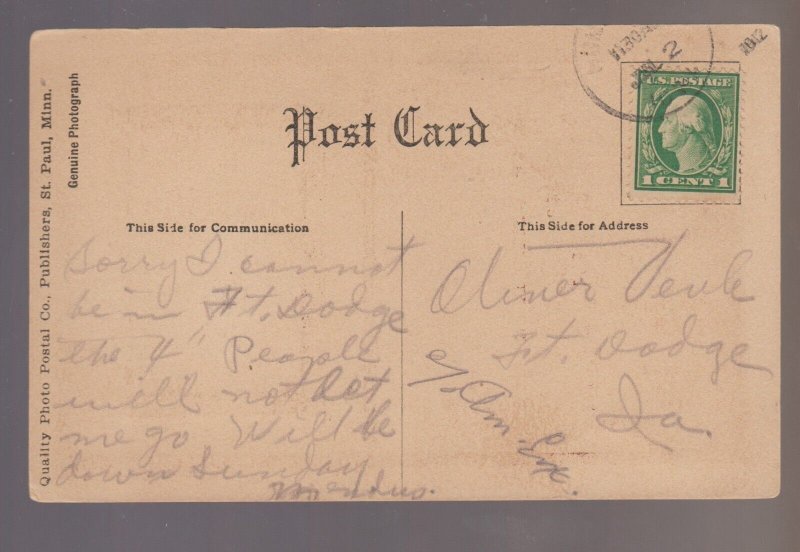 Quality Photo Postal Co., Publishers, St. Paul, Minn.
Genuine Photograph
Post Card
JUL 2
1912
U.S. POSTAGE
1 CENT 1
This Side for Communication
Sorry I cannot
be in Ft. Dodge
the 4" People
will not let
me go Will be
down Sunday
This Side for Address
Oliver
Ft. Dodge
Ia.
c/o Am. Exp.